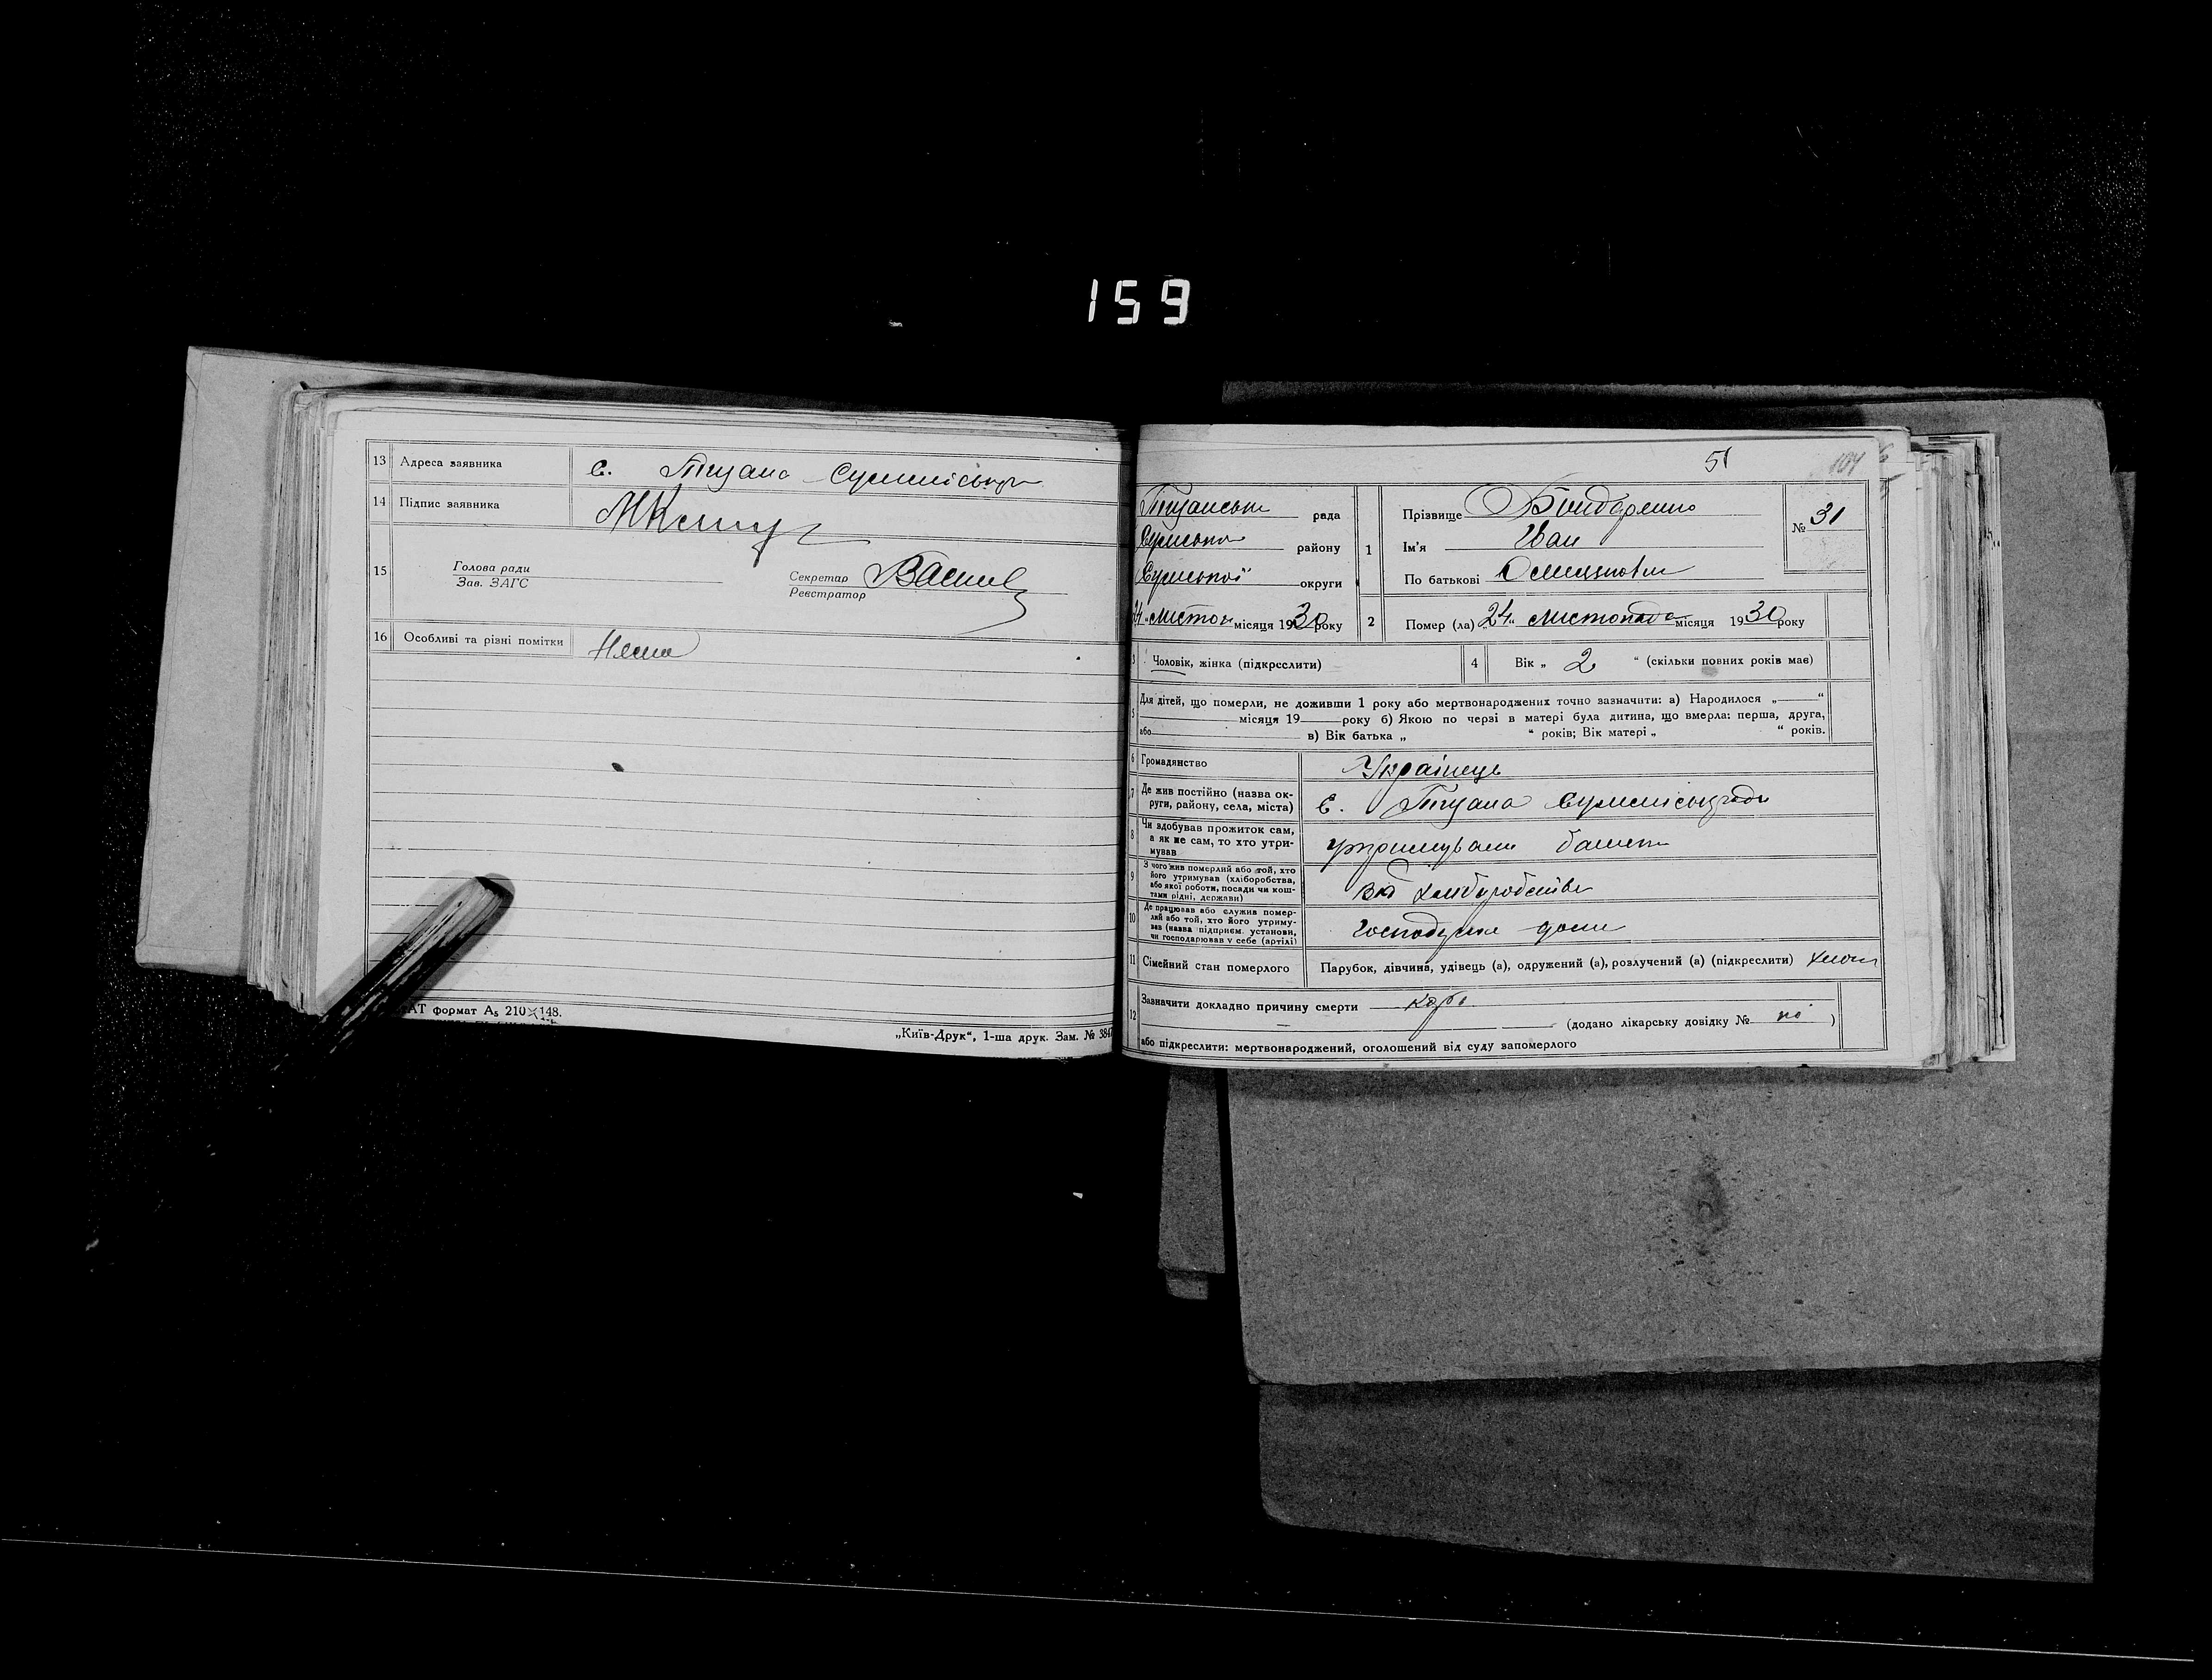 159
13 Адреса заявника с.
14 Підпис заявника
15 Голова ради
Зав. ЗАГС
Секретар
Реєстратор
16 Особливі та різні помітки Нема
АТ формат А₅ 210×148.
„Київ-Друк“, 1-ша друк. Зам. № 384
51
104
рада
району
Сумської округи
24 „листоп місяця 1930 року
1 Прізвище Бондаренко
Ім'я Іван
По батькові
№ 31
2 Помер (ла) „24“ листопада місяця 1930 року
3 Чоловік, жінка (підкреслити)
4 Вік „ 2 “ (скільки повних років має)
5 Для дітей, що померли, не доживши 1 року або мертвонароджених точно зазначити: а) Народилося „ “
місяця 19 року б) Якою по черзі в матері була дитина, що вмерла: перша, друга,
або в) Вік батька „ “ років; Вік матері „ “ років.
6 Громадянство Українець
7 Де жив постійно (назва ок-
руги, району, села, міста) с.
8 Чи здобував прожиток сам,
а як не сам, то хто утри-
мував утримували батьки
9 З чого жив померлий або той, хто
його утримував (хліборобства,
або якої роботи, посади чи кош-
тами рідні, держави) від хліборобства
10 Де працював або служив помер-
лий або той, хто його утриму-
вав (назва підприєм. установи,
чи господарював у себе (артілі)
11 Сімейний стан померлого Парубок, дівчина, удівець (а), одружений (а), розлучений (а) (підкреслити)
12 Зазначити докладно причину смерти
(додано лікарську довідку № )
або підкреслити: мертвонароджений, оголошений від суду запомерлого